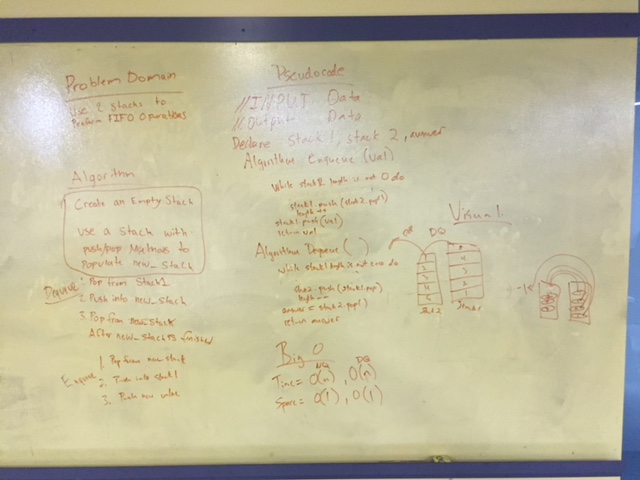 Problem Domain
Use 2 Stacks to
Perform FIFO Operations
Algorithm
Create an Empty Stack
Use a Stack with
push/pop Methods to
Populate new_Stack
Dequeue
1. Pop from Stack1
2. Push into new_stack
3. Pop from new_stack
After new_stack is finished
Enqueue
1. Pop from new stack
2. Push into stack1
3. Push new value
Pseudocode
//INPUT Data
//Output Data
Declare Stack1, stack 2, answer
Algorithm Enqueue (val)
While stack2 length is not 0 do
stack1.push (stack2.pop())
length--
stack1.push(val)
return val
Algorithm Dequeue ( )
while stack1 length is not zero do
stack2.push (stack1.pop)
length--
answer = stack2.pop()
return answer
Big O
NQ DQ
Time = O(n), O(n)
Space = O(1), O(1)
Visual
DQ
Stack2
Stack1